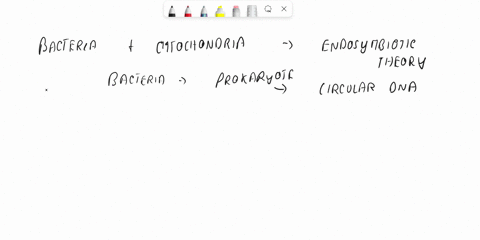 BACTERIA + MITOCHONDRIA → ENDOSYMBIOTIC THEORY
BACTERIA → PROKARYOTE → CIRCULAR DNA